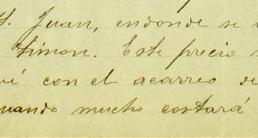 Juan, endonde se
Simon. Este precio
con el acarreo de
cuando mucho costará